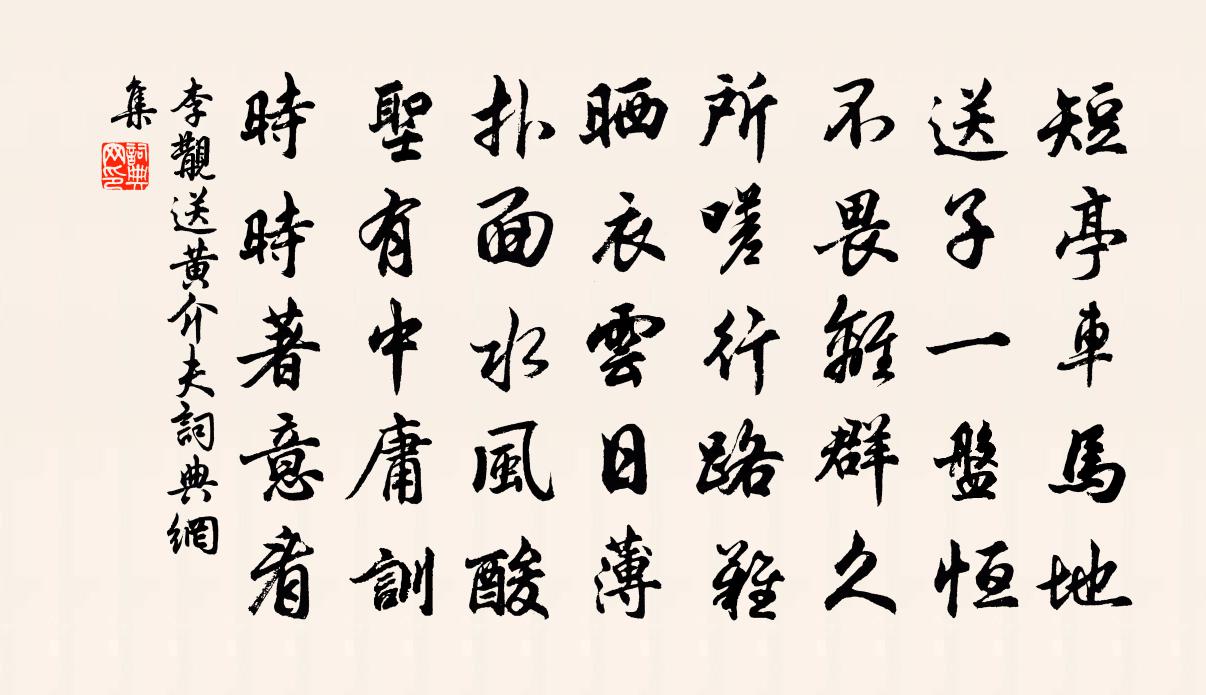 短亭車馬地
送子一盤恒
不畏離群久
所嗟行路難
晒衣雲日薄
扑面水風酸
聖有中庸訓
時時著意看
李觀送黃介夫詞典網
集
詞典網印